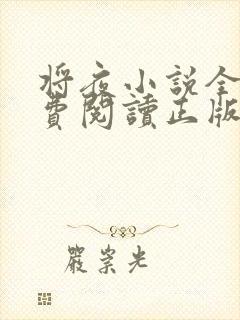 将夜小说全
費閱讀正版
嚴崇光